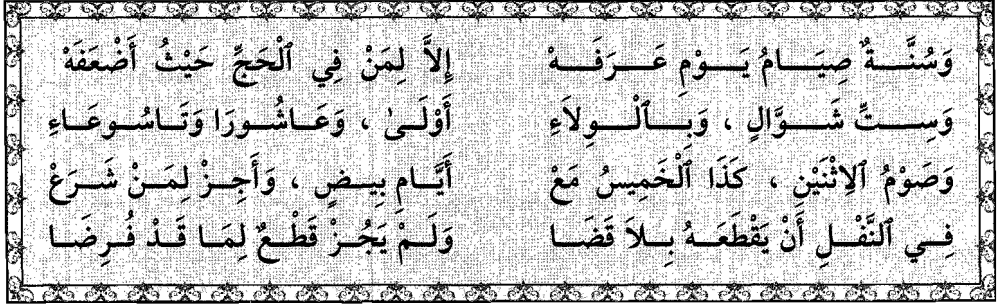 وَسُنَّةٌ صِيَامُ يَوْمِ عَرَفَهْ إِلاَّ لِمَنْ فِي ٱلْحَجِّ حَيْثُ أَضْعَفَهْ
وَسِتِّ شَوَّالٍ ، وَبِٱلْوِلاَءِ أَوْلَىٰ ، وَعَاشُورَا وَتَاسُوعَاءِ
وَصَوْمُ ٱلِاثْنَيْنِ ، كَذَا ٱلْخَمِيسُ مَعْ أَيَّامِ بِيضٍ ، وَأَجِزْ لِمَنْ شَرَعْ
فِي ٱلنَّفْلِ أَنْ يَقْطَعَهُ بِلاَ قَضَا وَلَمْ يَجُزْ قَطْعٌ لِمَا قَدْ فُرِضَا